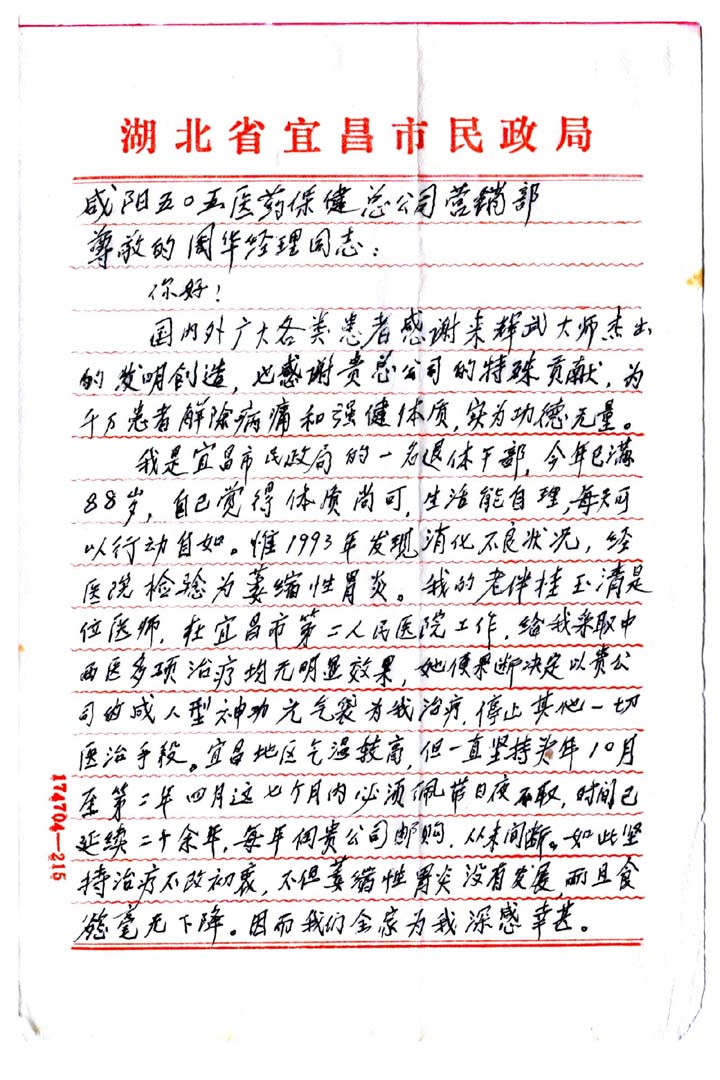 湖北省宜昌市民政局
咸阳五〇五医药保健总公司营销部
尊敬的周华经理同志：
你好！
国内外广大各类患者感谢来辉武大师杰出
的发明创造，也感谢贵总公司的特殊贡献，为
千万患者解除病痛和强健体质，实为功德无量。
我是宜昌市民政局的一名退休干部，今年已满
88岁，自己觉得体质尚可，生活能自理，每天可
以行动自如。惟1993年发现消化不良状况，经
医院检验为萎缩性胃炎。我的老伴桂玉清是
位医师，在宜昌市第二人民医院工作，给我采取中
西医多项治疗均无明显效果，她便果断决定以贵公
司的成人型神功元气袋为我治疗，停止其他一切
医治手段。宜昌地区气温较高，但一直坚持当年10月
至第二年四月这七个月内必须佩带日夜不取，时间已
延续二十余年，每年向贵公司邮购，从未间断。如此坚
持治疗不改初衷，不但萎缩性胃炎没有发展，而且食
欲毫无下降。因而我们全家为我深感幸甚。
174704—215